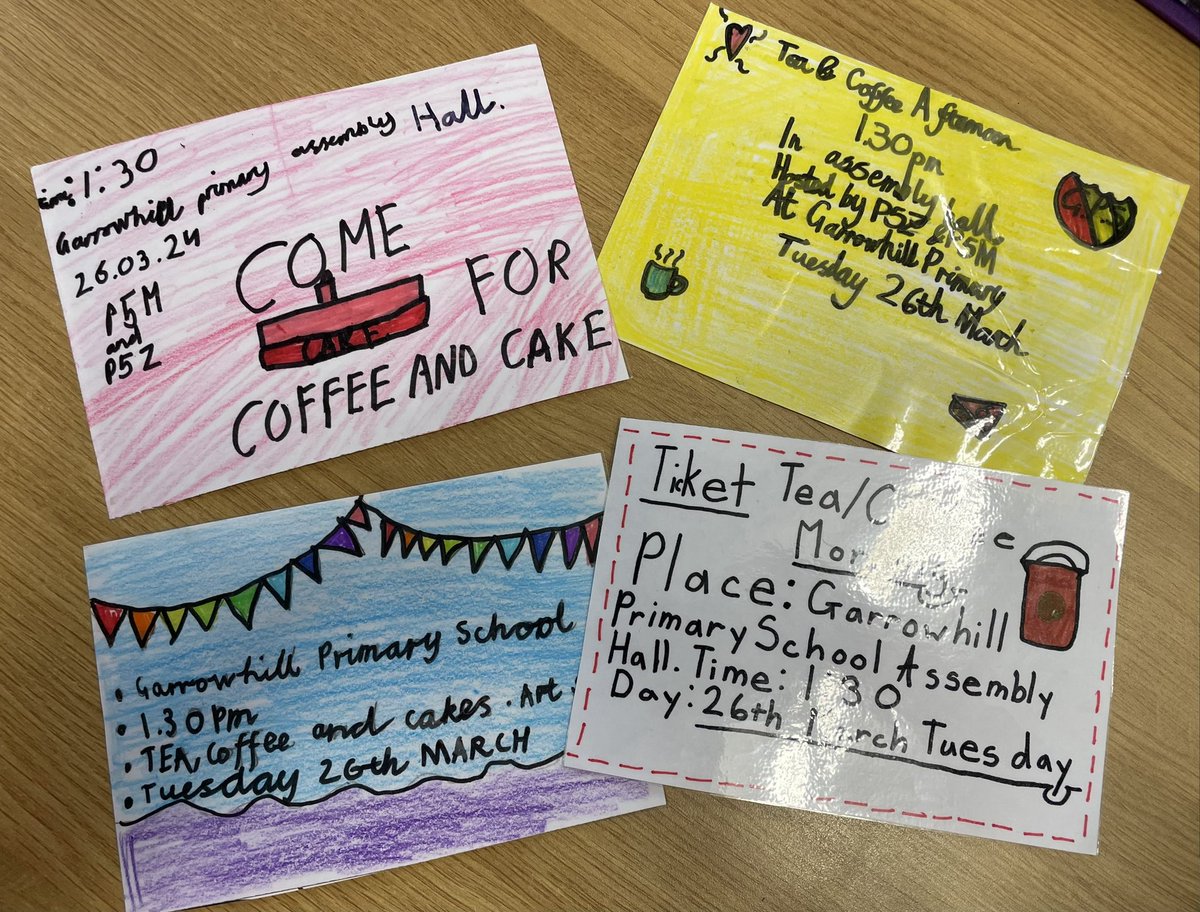 1:30
Garrowhill primary assembly Hall.
26.03.24
P5M
and
P5Z
COME
FOR
CAKE
COFFEE AND CAKE
Tea & Coffee Afternoon
1.30pm
In assembly hall
Hosted by P5Z & P5M
At Garrowhill Primary
Tuesday 26th March
• Garrowhill Primary School
• 1.30pm
• TEA, Coffee and cakes. Art
• Tuesday 26th MARCH
Ticket Tea/C
Place: Garrowhill
Primary School Assembly
Hall. Time: 1:30
Day: 26th March Tuesday